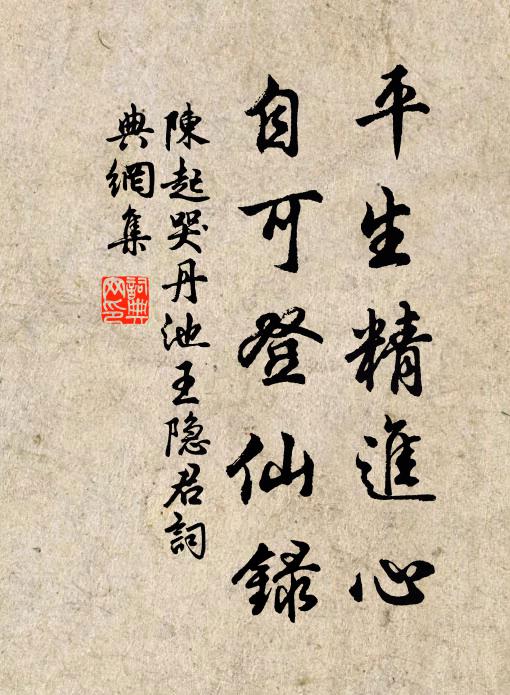 平生精進心
自可登仙録
陳起哭丹池王隐君詞
典網集
詞典網印